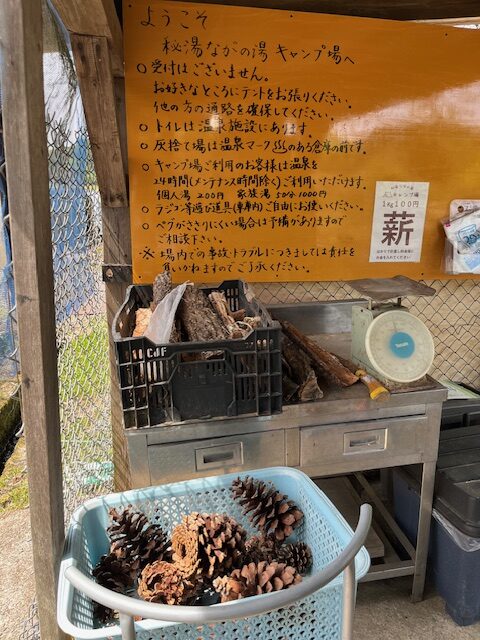 ようこそ
秘湯ながの湯 キャンプ場へ
○受付はございません。
お好きなところにテントをお張りください。
他の方の通路を確保してください。
○トイレは温泉施設にあります。
○灰捨て場は温泉マーク♨のある倉庫の前です。
○キャンプ場ご利用のお客様は温泉を
24時間(メンテナンス時間除く)ご利用いただけます。
個人湯 200円 家族湯 50分1000円
○ラジコン等遊び道具(車庫内)ご自由にお使いください。
○ペグがささりにくい場合は予備がありますので
ご相談下さい。
※場内での事故・トラブルにつきましては責任を
負いかねますのでご了承ください。
1kg100円
薪